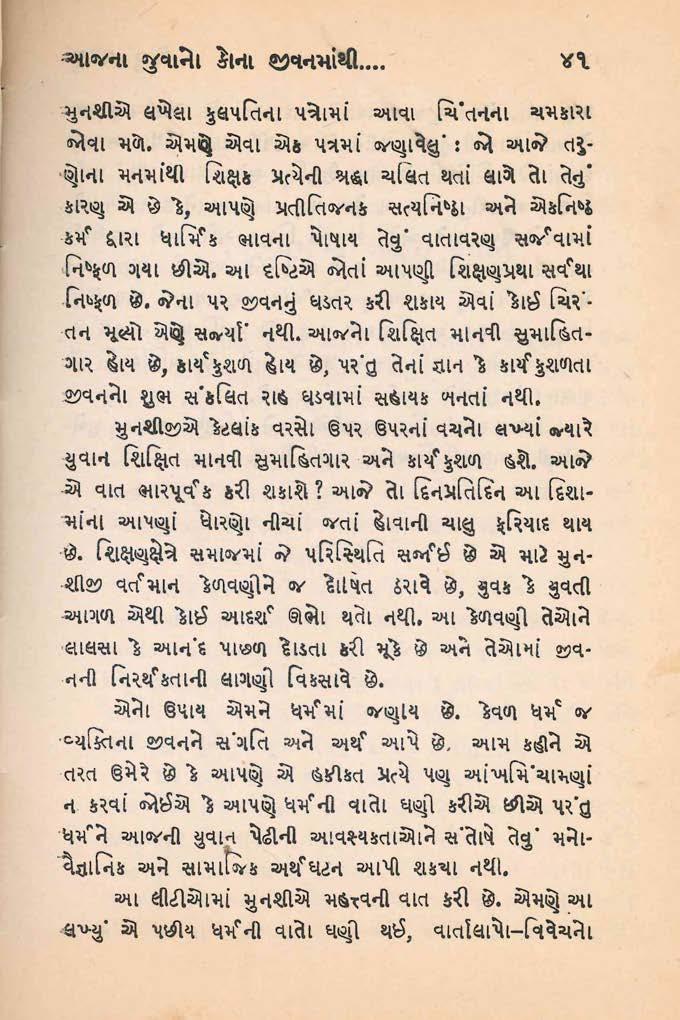 આજના જુવાનો કોના જીવનમાંથી.... ૪૧
મુનશીએ લખેલા કુલપતિના પત્રોમાં આવા ચિંતનના ચમકારા
જોવા મળે. એમણે એવા એક પત્રમાં જણાવેલું : જો આજે તરુ-
ણોના મનમાંથી શિક્ષક પ્રત્યેની શ્રદ્ધા ચલિત થતાં લાગે તો તેનું
કારણ એ છે કે, આપણે પ્રતીતિજનક સત્યનિષ્ઠા અને એકનિષ્ઠ
કર્મ દ્વારા ધાર્મિક ભાવના પોષાય તેવું વાતાવરણ સર્જવામાં
નિષ્ફળ ગયા છીએ. આ દૃષ્ટિએ જોતાં આપણી શિક્ષણપ્રથા સર્વથા
નિષ્ફળ છે. જેના પર જીવનનું ઘડતર કરી શકાય એવાં કોઈ ચિરં-
તન મૂલ્યો એણે સર્જ્યાં નથી. આજનો શિક્ષિત માનવી સુમાહિત-
ગાર હોય છે, કાર્યકુશળ હોય છે, પરંતુ તેનાં જ્ઞાન કે કાર્યકુશળતા
જીવનનો શુભ સંકલિત રાહ ઘડવામાં સહાયક બનતાં નથી.
મુનશીજીએ કેટલાંક વરસો ઉપર ઉપરનાં વચનો લખ્યાં જ્યારે
યુવાન શિક્ષિત માનવી સુમાહિતગાર અને કાર્યકુશળ હશે. આજે
એ વાત ભારપૂર્વક કરી શકાશે ? આજે તો દિનપ્રતિદિન આ દિશા-
માંના આપણાં ધોરણો નીચાં જતાં હોવાની ચાલુ ફરિયાદ થાય
છે. શિક્ષણક્ષેત્રે સમાજમાં જે પરિસ્થિતિ સર્જાઈ છે એ માટે મુન-
શીજી વર્તમાન કેળવણીને જ દોષિત ઠરાવે છે, યુવક કે યુવતી
આગળ એથી કોઈ આદર્શ ઊભો થતો નથી. આ કેળવણી તેઓને
લાલસા કે આનંદ પાછળ દોડતા કરી મૂકે છે અને તેઓમાં જીવ-
નની નિરર્થકતાની લાગણી વિકસાવે છે.
એનો ઉપાય એમને ધર્મમાં જણાય છે. કેવળ ધર્મ જ
વ્યક્તિના જીવનને સંગતિ અને અર્થ આપે છે. આમ કહીને એ
તરત ઉમેરે છે કે આપણે એ હકીકત પ્રત્યે પણ આંખમિંચામણાં
ન કરવાં જોઈએ કે આપણે ધર્મની વાતો ઘણી કરીએ છીએ પરંતુ
ધર્મને આજની યુવાન પેઢીની આવશ્યકતાઓને સંતોષે તેવું મનો-
વૈજ્ઞાનિક અને સામાજિક અર્થઘટન આપી શકયા નથી.
આ લીટીઓમાં મુનશીએ મહત્ત્વની વાત કરી છે. એમણે આ
લખ્યું એ પછીય ધર્મની વાતો ઘણી થઈ, વાર્તાલાપો–વિવેચનો